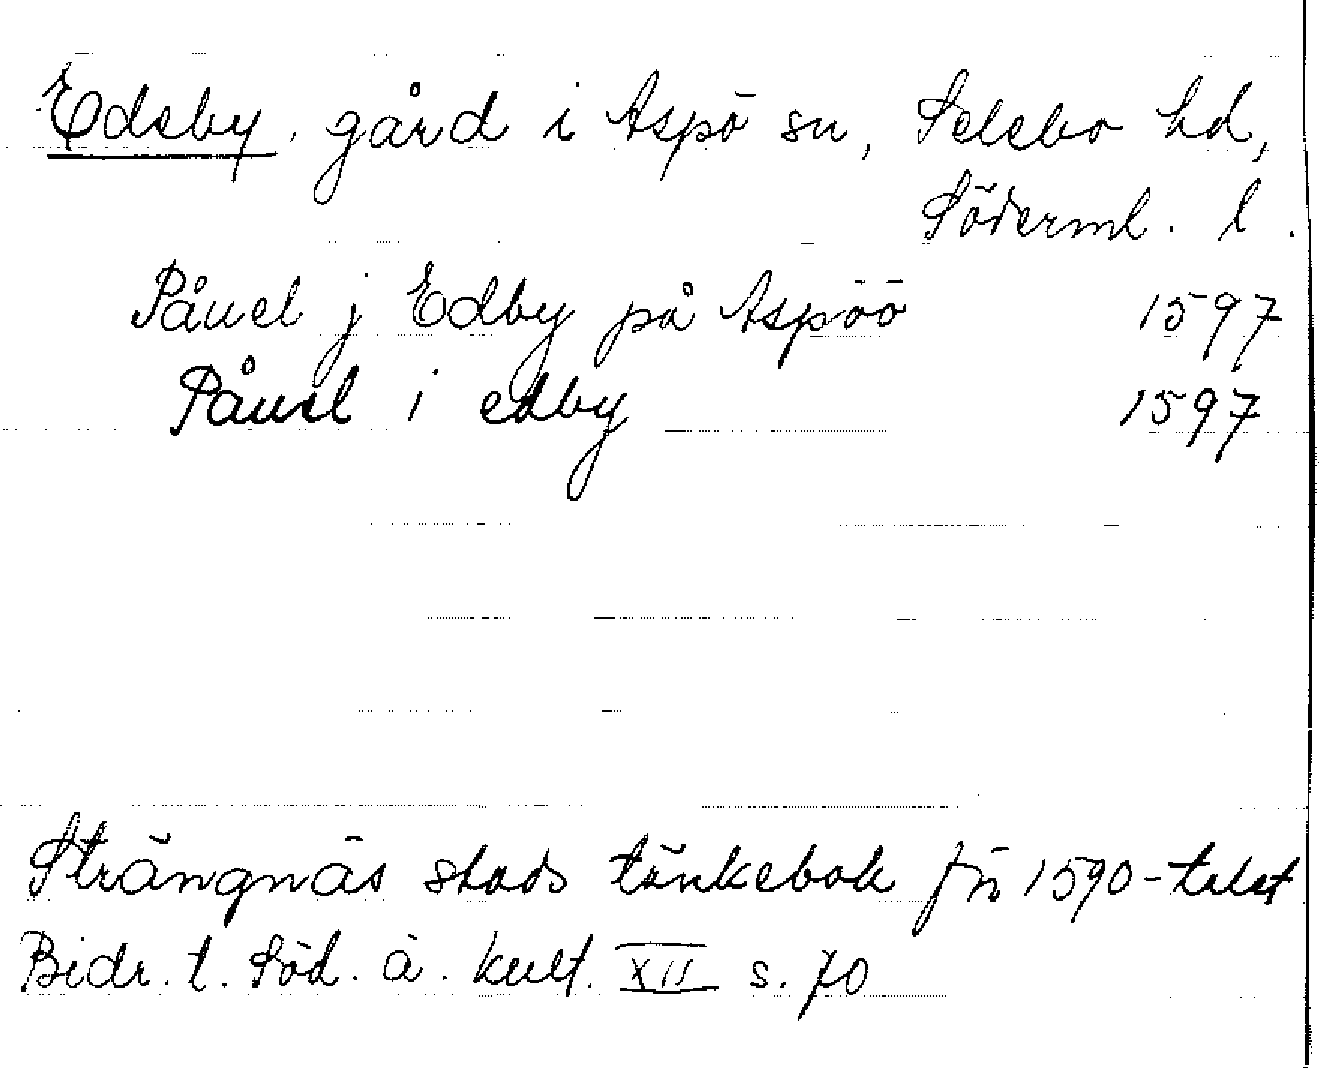 Edsby, gård i Aspö sn, Selebo hd,
Söderml. l.
Påuel j Edby på Aspöö 1597
Påuel i edby 1597
Strängnäs stads tänkebok fr. 1590-talet
Bidr. t. Söd. ä. kult. XII s. 70